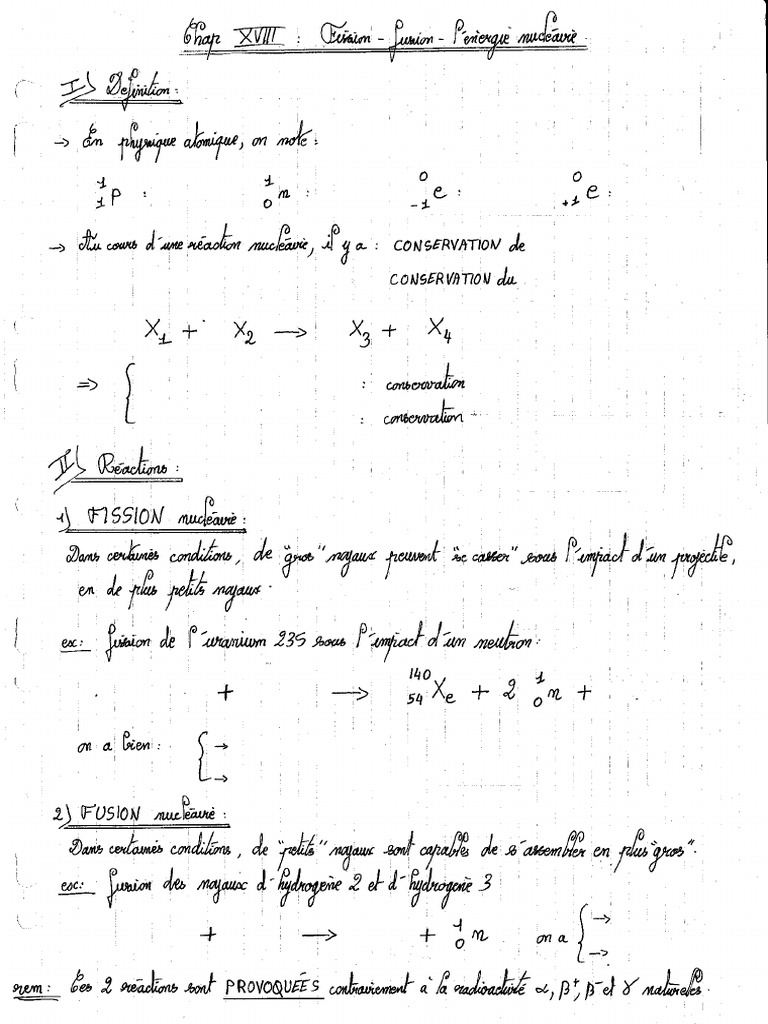 Chap XVIII : Fission - fusion - l'énergie nucléaire.
I) Définition :
→ En physique atomique, on note :
¹₁p : ¹₀n : ⁰₋₁e : ⁰₊₁e :
→ Au cours d'une réaction nucléaire, il y a : CONSERVATION de
CONSERVATION du
X₁ + X₂ → X₃ + X₄
=> { : conservation
: conservation
II) Réactions :
1) FISSION nucléaire :
Dans certaines conditions, de "gros" noyaux peuvent "se casser" sous l'impact d'un projectile,
en de plus petits noyaux.
ex: fission de l'uranium 235 sous l'impact d'un neutron :
+ → ¹⁴⁰₅₄Xe + 2 ¹₀n +
on a bien : { →
→
2) FUSION nucléaire :
Dans certaines conditions, de "petits" noyaux sont capables de s'assembler en plus "gros".
ex: fusion des noyaux d'hydrogène 2 et d'hydrogène 3
+ → + ¹₀n on a { →
→
rem : Ces 2 réactions sont PROVOQUÉES contrairement à la radioactivité α, β⁺, β⁻ et γ naturelles.